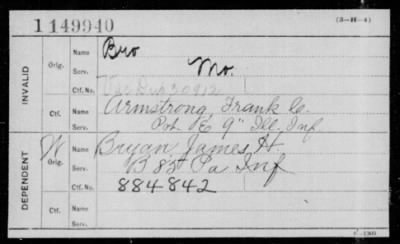 1149940
(3-H-4)
INVALID
Orig.
Name Bro
Serv. Mo.
Ctf. No.
Ctf.
Name Armstrong, Frank C.
Serv. Pvt. "E" 9" Ill. Inf
DEPENDENT
W
Orig.
Name Bryan James H.
Serv. B 85 Pa Inf
Ctf. No. 884842
Ctf.
Name
Serv.